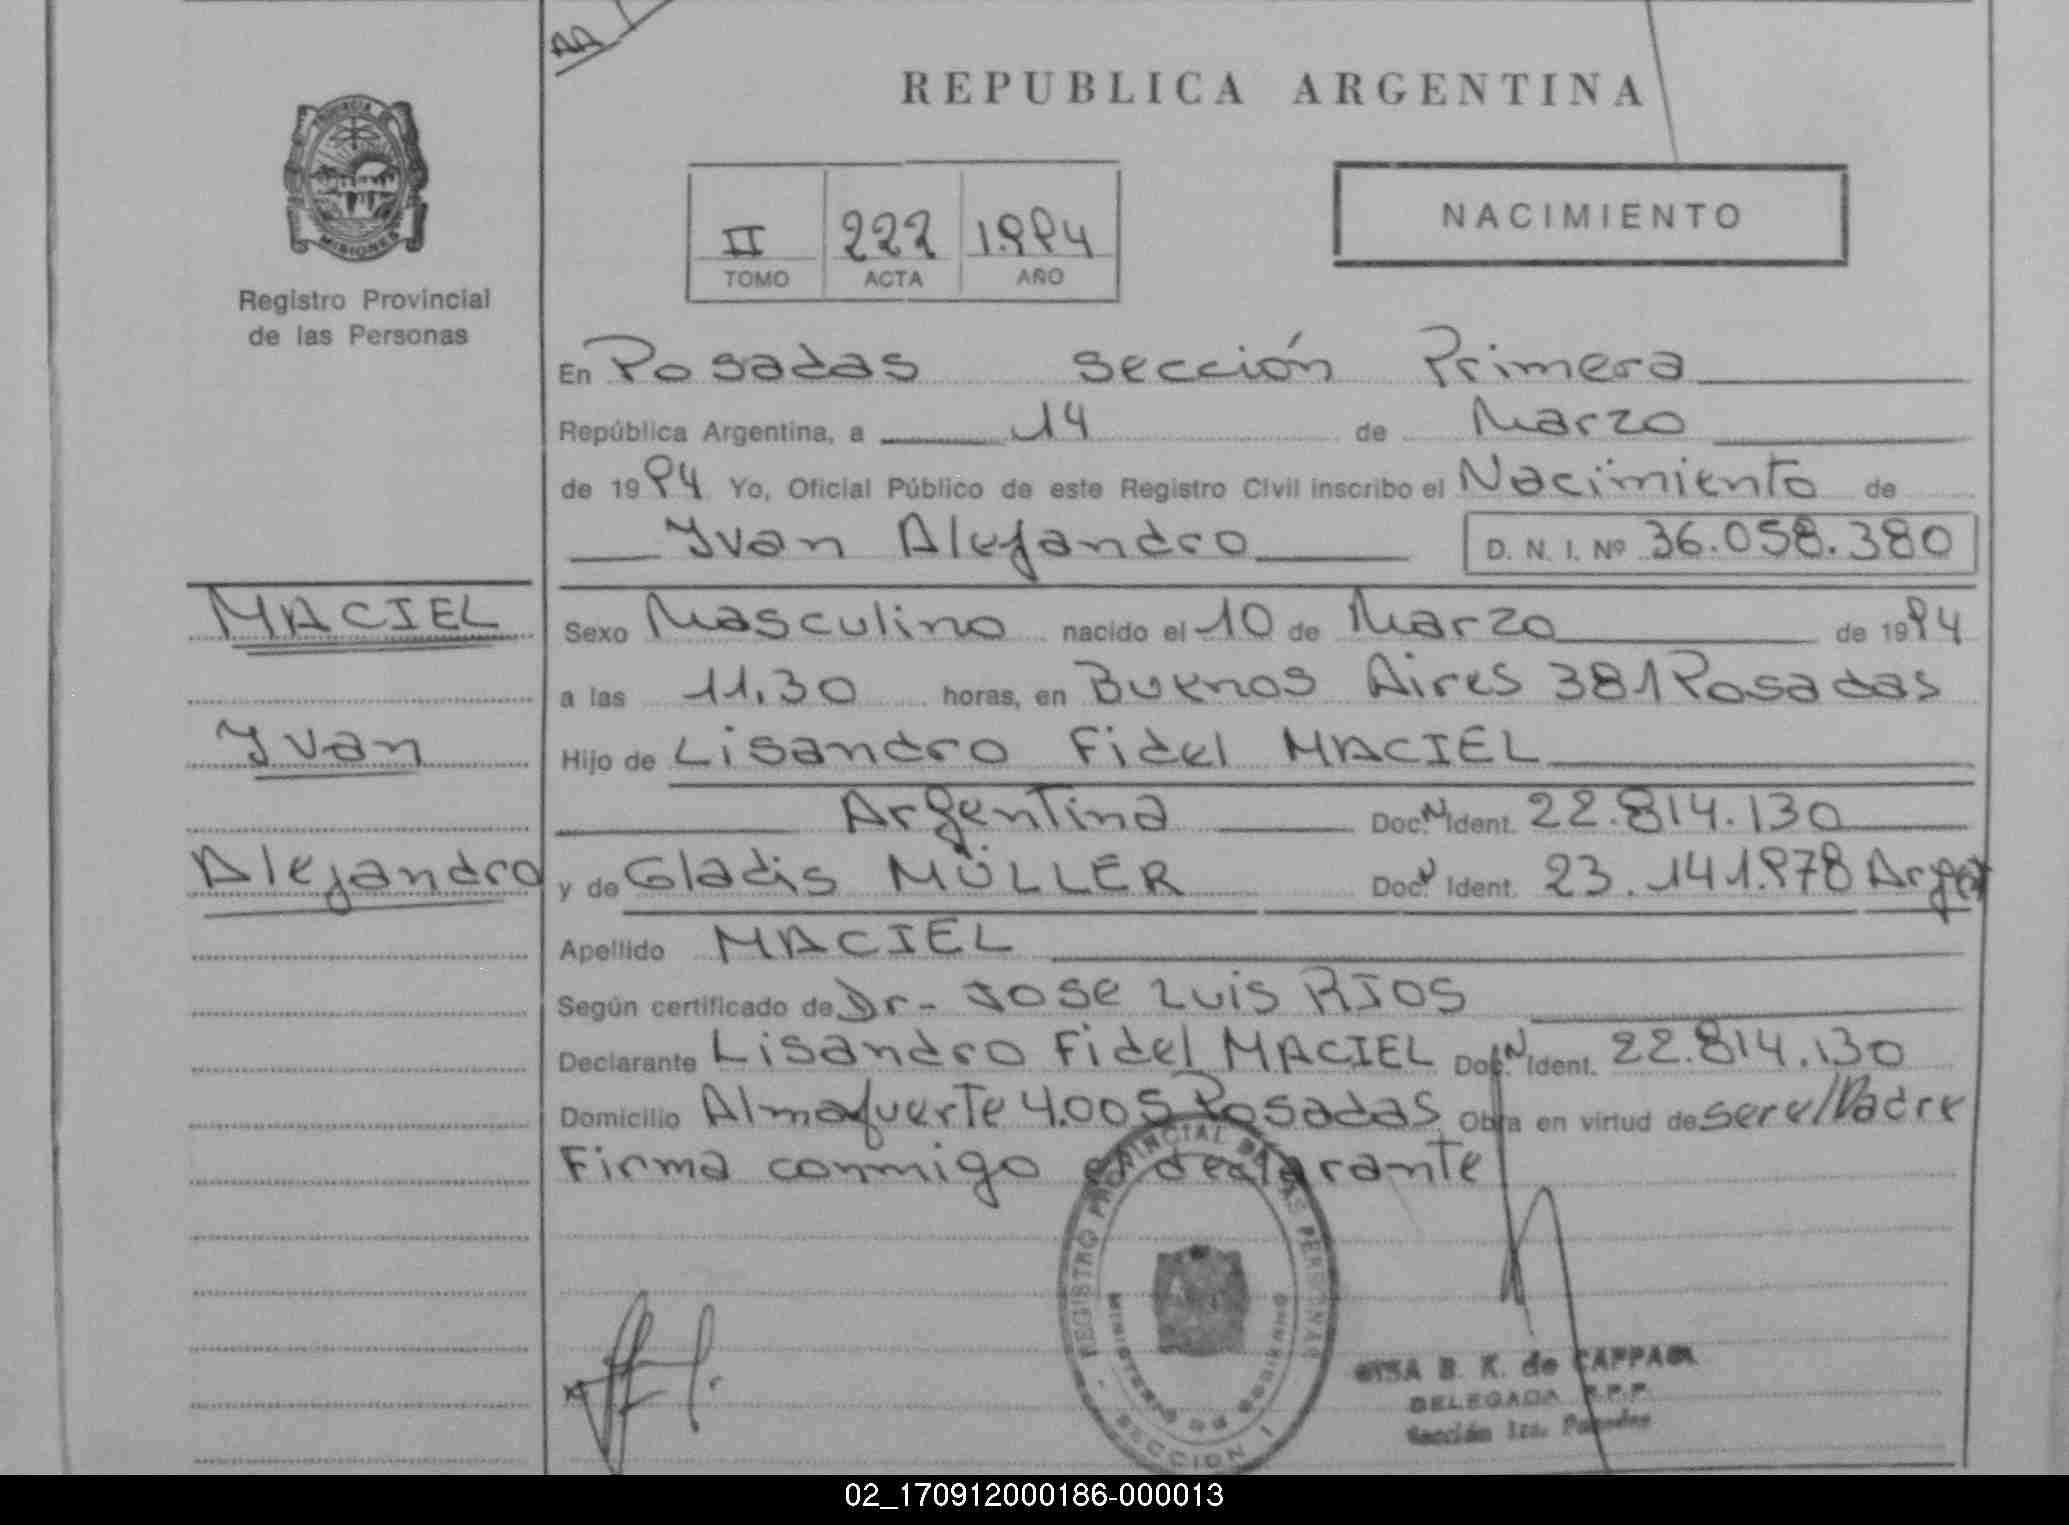 AA
REPUBLICA ARGENTINA
PROVINCIA
MISIONES
Registro Provincial
de las Personas
II 222 1.994
TOMO ACTA AÑO
NACIMIENTO
En Posadas sección Primera
República Argentina, a 14 de Marzo
de 1994 Yo, Oficial Público de este Registro Civil inscribo el Nacimiento de
Yvan Alejandro D. N. I. Nº 36.058.380
MACIEL
Yvan
Alejandro
Sexo Masculino nacido el 10 de Marzo de 1994
a las 11.30 horas, en Buenos Aires 381 Posadas
Hijo de Lisandro Fidel MACIEL
Argentina Doc. N Ident. 22.814.130
y de Gladis MÜLLER Doc. N Ident. 23.141.978 Arget
Apellido MACIEL
Según certificado de Dr- Jose Luis RIOS
Declarante Lisandro Fidel MACIEL Doc. N Ident. 22.814.130
Domicilio Almafuerte 4.005 Posadas Obra en virtud de ser e/Padre
Firma conmigo el declarante
REGISTRO PROVINCIAL DE LAS PERSONAS
MINISTERIO DE GOBIERNO
- SECCION 1
B. K. de CAPPA
DELEGADA R.P.P.
Sección 1ra. Posadas
02_170912000186-000013